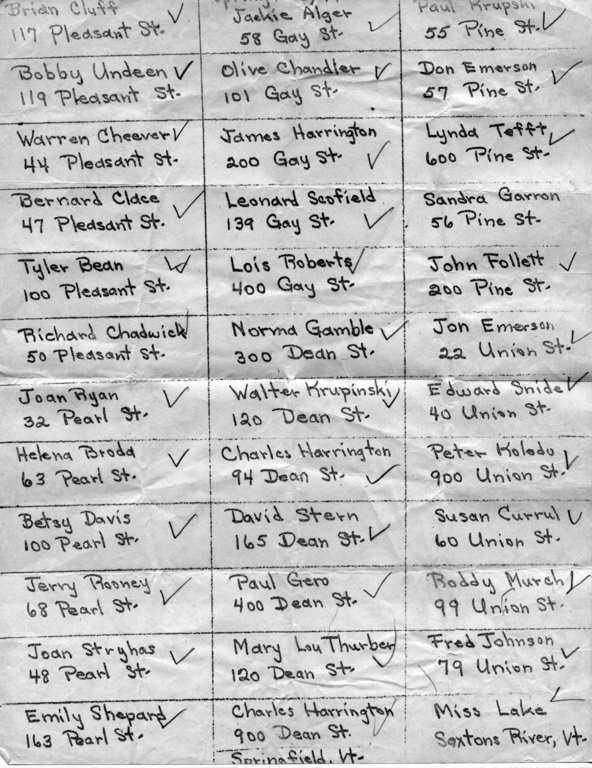 Brian Cluff
117 Pleasant St.
Jackie Alger
58 Gay St.
Paul Krupski
55 Pine St.
Bobby Undeen
119 Pleasant St.
Olive Chandler
101 Gay St.
Don Emerson
57 Pine St.
Warren Cheever
44 Pleasant St.
James Harrington
200 Gay St.
Lynda Tefft
600 Pine St.
Bernard Clace
47 Pleasant St.
Leonard Scofield
139 Gay St.
Sandra Garron
56 Pine St.
Tyler Bean
100 Pleasant St.
Lois Roberts
400 Gay St.
John Follett
200 Pine St.
Richard Chadwick
50 Pleasant St.
Norma Gamble
300 Dean St.
Jon Emerson
22 Union St.
Joan Ryan
32 Pearl St.
Walter Krupinski
120 Dean St.
Edward Snide
40 Union St.
Helena Broda
63 Pearl St.
Charles Harrington
94 Dean St.
Peter Koledo
900 Union St.
Betsy Davis
100 Pearl St.
David Stern
165 Dean St.
Susan Currul
60 Union St.
Jerry Rooney
68 Pearl St.
Paul Gero
400 Dean St.
Roddy Murch
99 Union St.
Joan Stryhas
48 Pearl St.
Mary Lou Thurber
120 Dean St.
Fred Johnson
79 Union St.
Emily Shepard
163 Pearl St.
Charles Harrington
900 Dean St.
Springfield, Vt.
Miss Lake
Saxtons River, Vt.